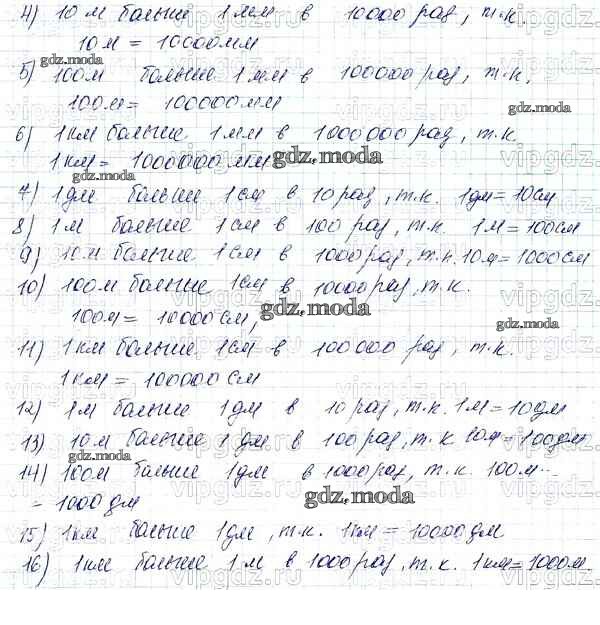 4) 10 м больше 1 мм в 10000 раз, т.к.
10 м = 10000 мм
gdz.moda
5) 100 м больше 1 мм в 100000 раз, т.к.
100 м = 100000 мм
gdz.moda
6) 1 км больше 1 мм в 1000000 раз, т.к.
1 км = 1000000 мм
gdz.moda
gdz.moda
7) 1 дм больше 1 см в 10 раз, т.к. 1 дм = 10 см
8) 1 м больше 1 см в 100 раз, т.к. 1 м = 100 см
9) 10 м больше 1 см в 1000 раз, т.к. 10 м = 1000 см
10) 100 м больше 1 см в 10000 раз, т.к.
gdz.moda
100 м = 10000 см,
gdz.moda
11) 1 км больше 1 см в 100000 раз, т.к.
1 км = 100000 см
12) 1 м больше 1 дм в 10 раз, т.к. 1 м = 10 дм
13) 10 м больше 1 дм в 100 раз, т.к. 10 м = 100 дм
gdz.moda
14) 100 м больше 1 дм в 1000 раз, т.к. 100 м =
= 1000 дм
gdz.moda
15) 1 км больше 1 дм, т.к. 1 км = 10000 дм
16) 1 км больше 1 м в 1000 раз, т.к. 1 км = 1000 м.
vipgdz.ru